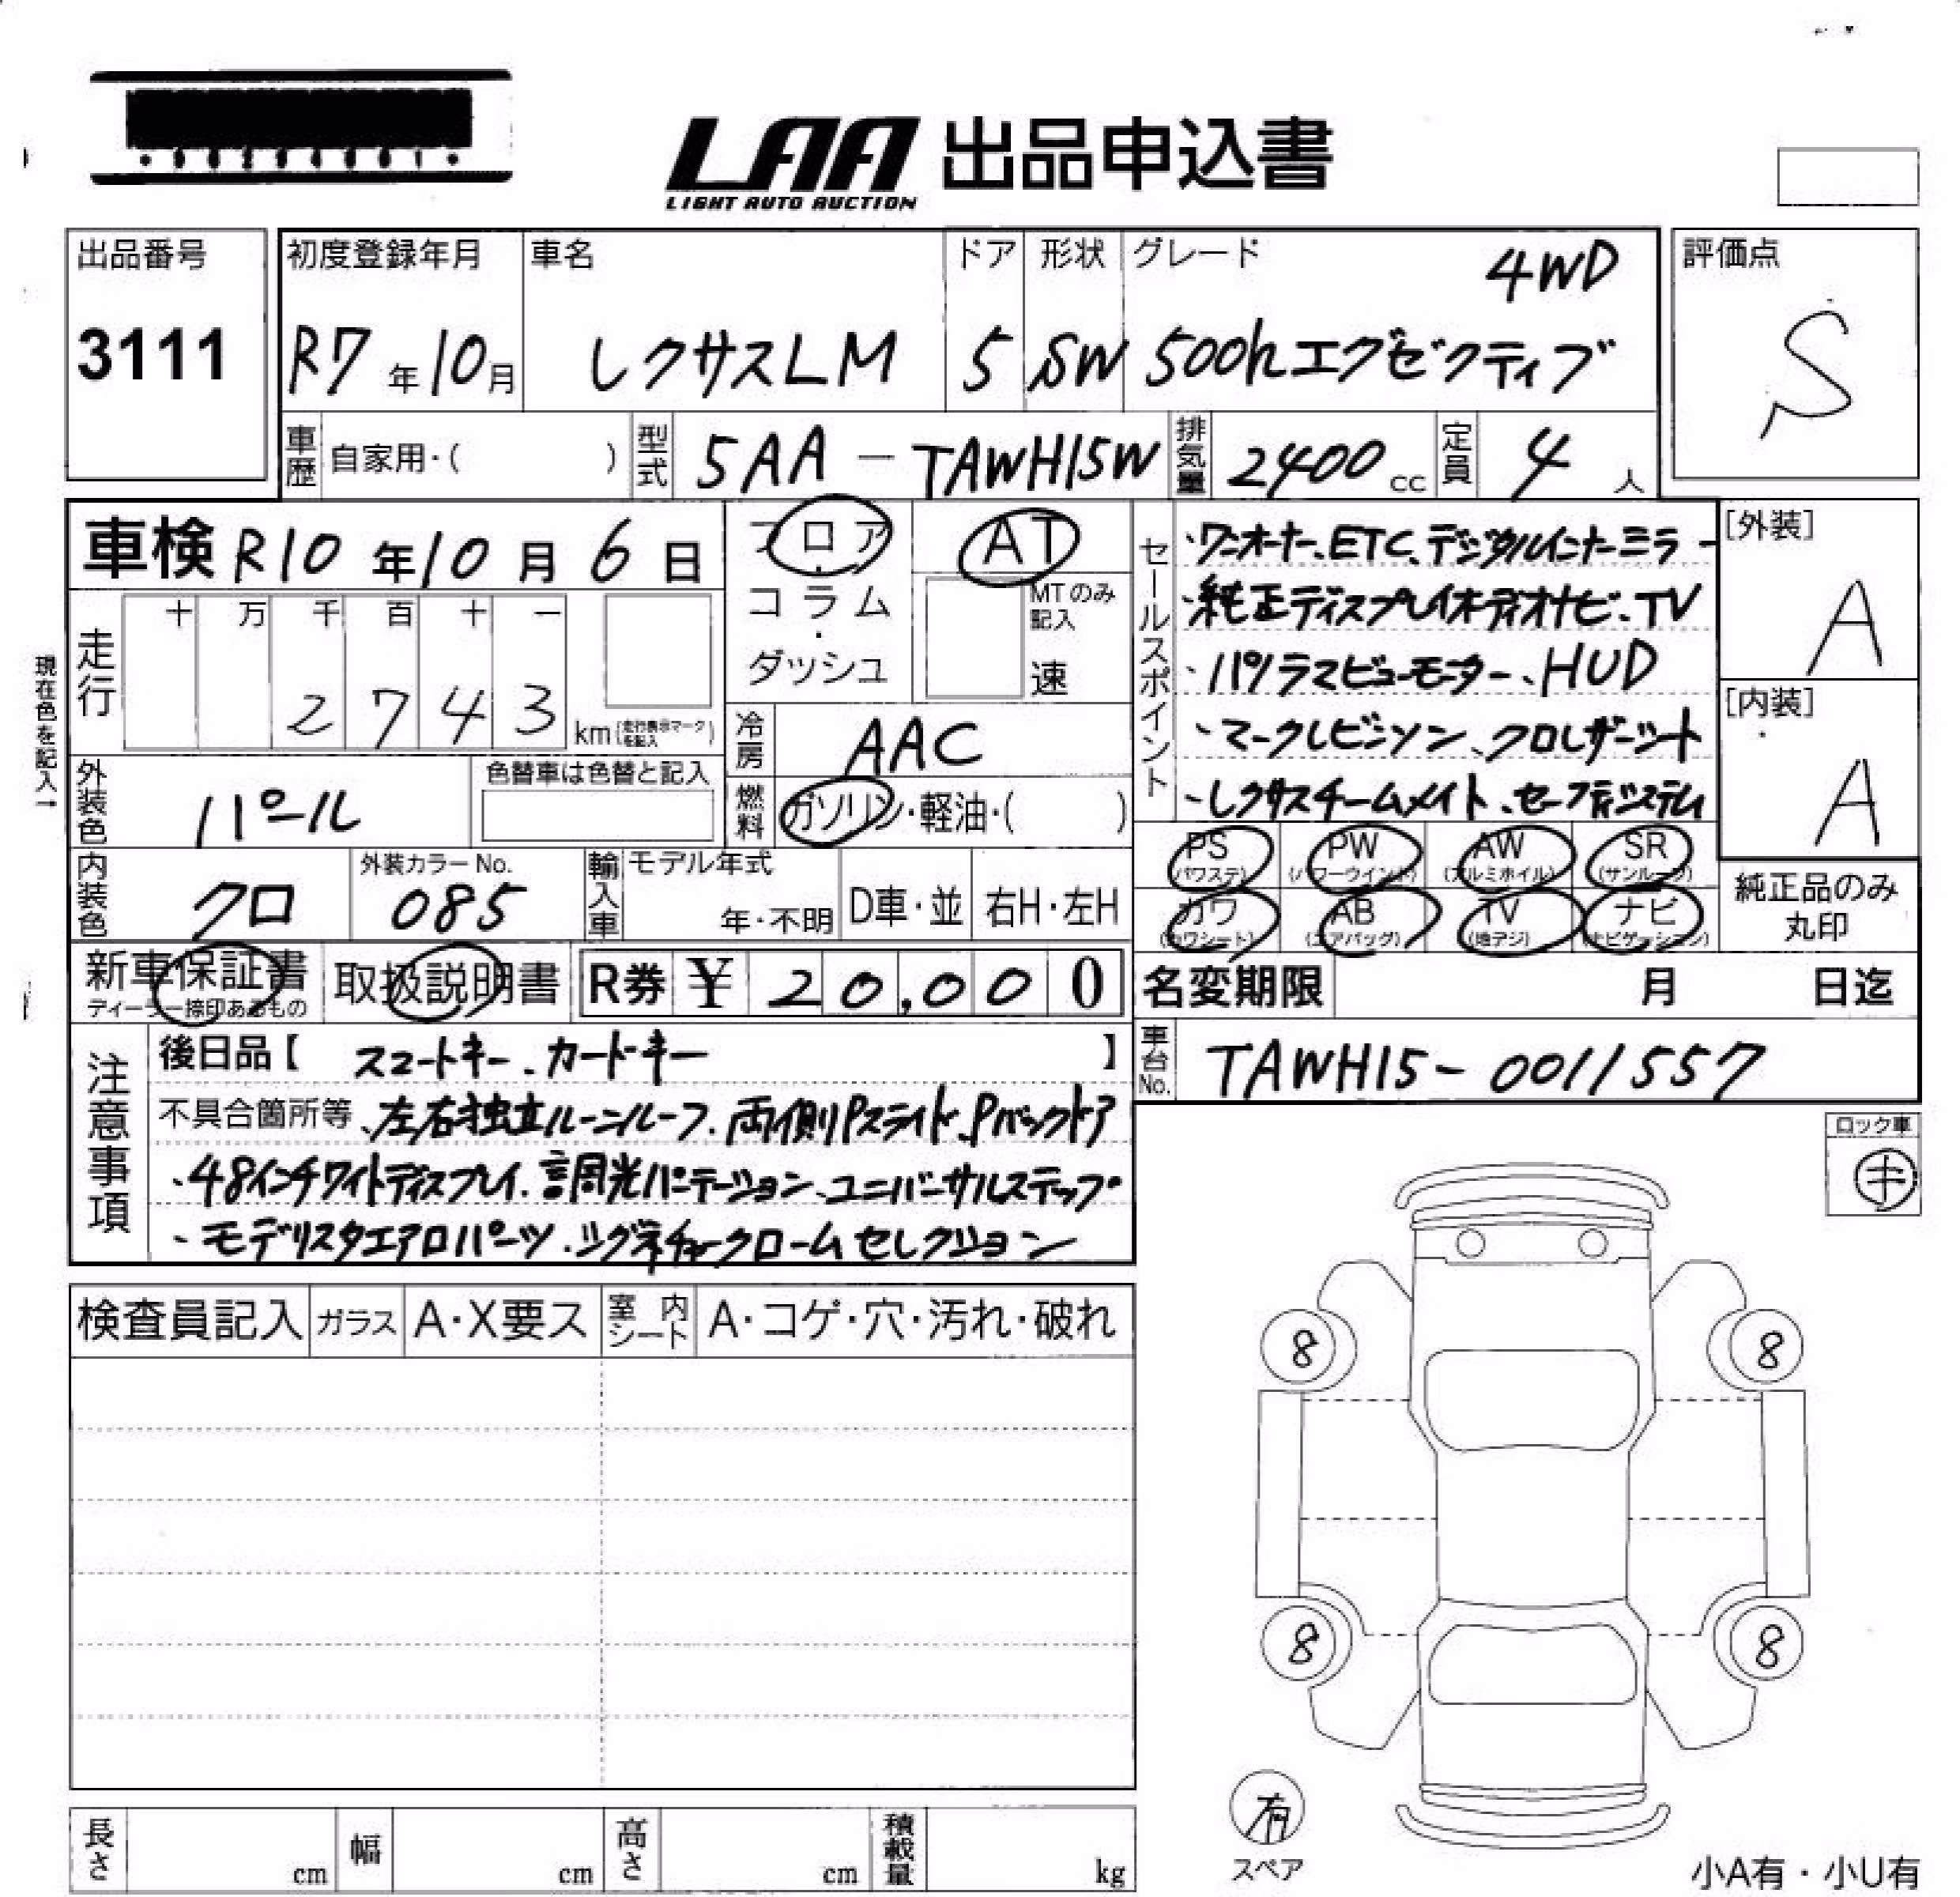 LAA 出品申込書
LIGHT AUTO AUCTION
出品番号
3111
初度登録年月
R7年10月
車名
レクサスLM
ドア
5
形状
SW
グレード
4WD
500hエグゼクティブ
評価点
S
車歴 自家用・( )
型式 5AA-TAWH15W
排気量 2400cc
定員 4人
車検 R10年10月6日
フロア・コラム・ダッシュ
AT
MTのみ記入
速
走行
十 万 千 百 十 一
2 7 4 3 km(走行表示マークを記入)
現在色を記入→
外装色 パール
色替車は色替と記入
冷房 AAC
燃料 ガソリン・軽油・( )
内装色 クロ
外装カラーNo. 085
輸入車 モデル年式 年・不明 D車・並 右H・左H
セールスポイント
・ワンオーナー、ETC、デジタルインナーミラー
・純正ディスプレイオーディオナビ、TV
・パノラマビューモーター、HUD
・マークレビンソン、クロレザーシート
・レクサスチームメイト、セーフティシステム
[外装]
A
[内装]
A
PS (パワステ) PW (パワーウインド) AW (アルミホイル) SR (サンルーフ)
カワ (カワシート) AB (エアバッグ) TV (地デジ) ナビ (ナビゲーション)
純正品のみ丸印
新車保証書 ディーラー捺印あるもの
取扱説明書
R券 ¥20,000
名変期限 月 日迄
車台No. TAWH15-0011557
注意事項
後日品【 スマートキー、カードキー 】
不具合箇所等、左右独立ムーンルーフ、両側Pスライド、Pバックドア
・48インチワイドディスプレイ、調光パーテーション、ユニバーサルステップ
・モデリスタエアロパーツ、シグネチャークロームセレクション
ロック車
キ
検査員記入 ガラス A・X要ス 室内シート A・コゲ・穴・汚れ・破れ
8 8
8 8
有
スペア
長さ cm 幅 cm 高さ cm 積載量 kg
小A有・小U有